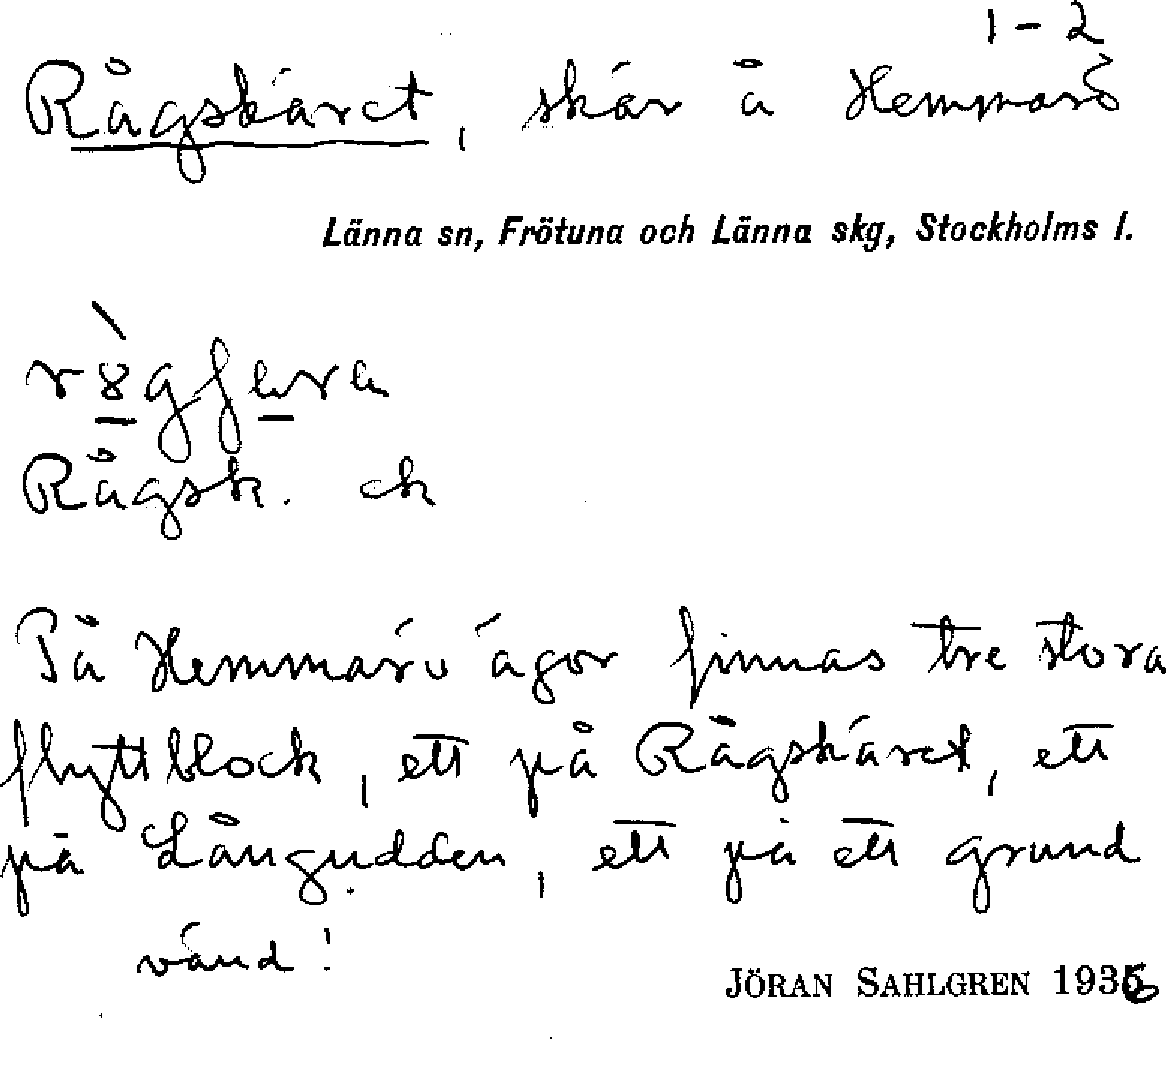 1-2
Rågskäret, skär å Hemmarö
Länna sn, Frötuna och Länna skg, Stockholms l.
Rågsk. ek
På Hemmarö ägor finnas tre stora
flyttblock, ett på Rågskäret, ett
på Långudden, ett på ett grund
vänd!
JÖRAN SAHLGREN 1936